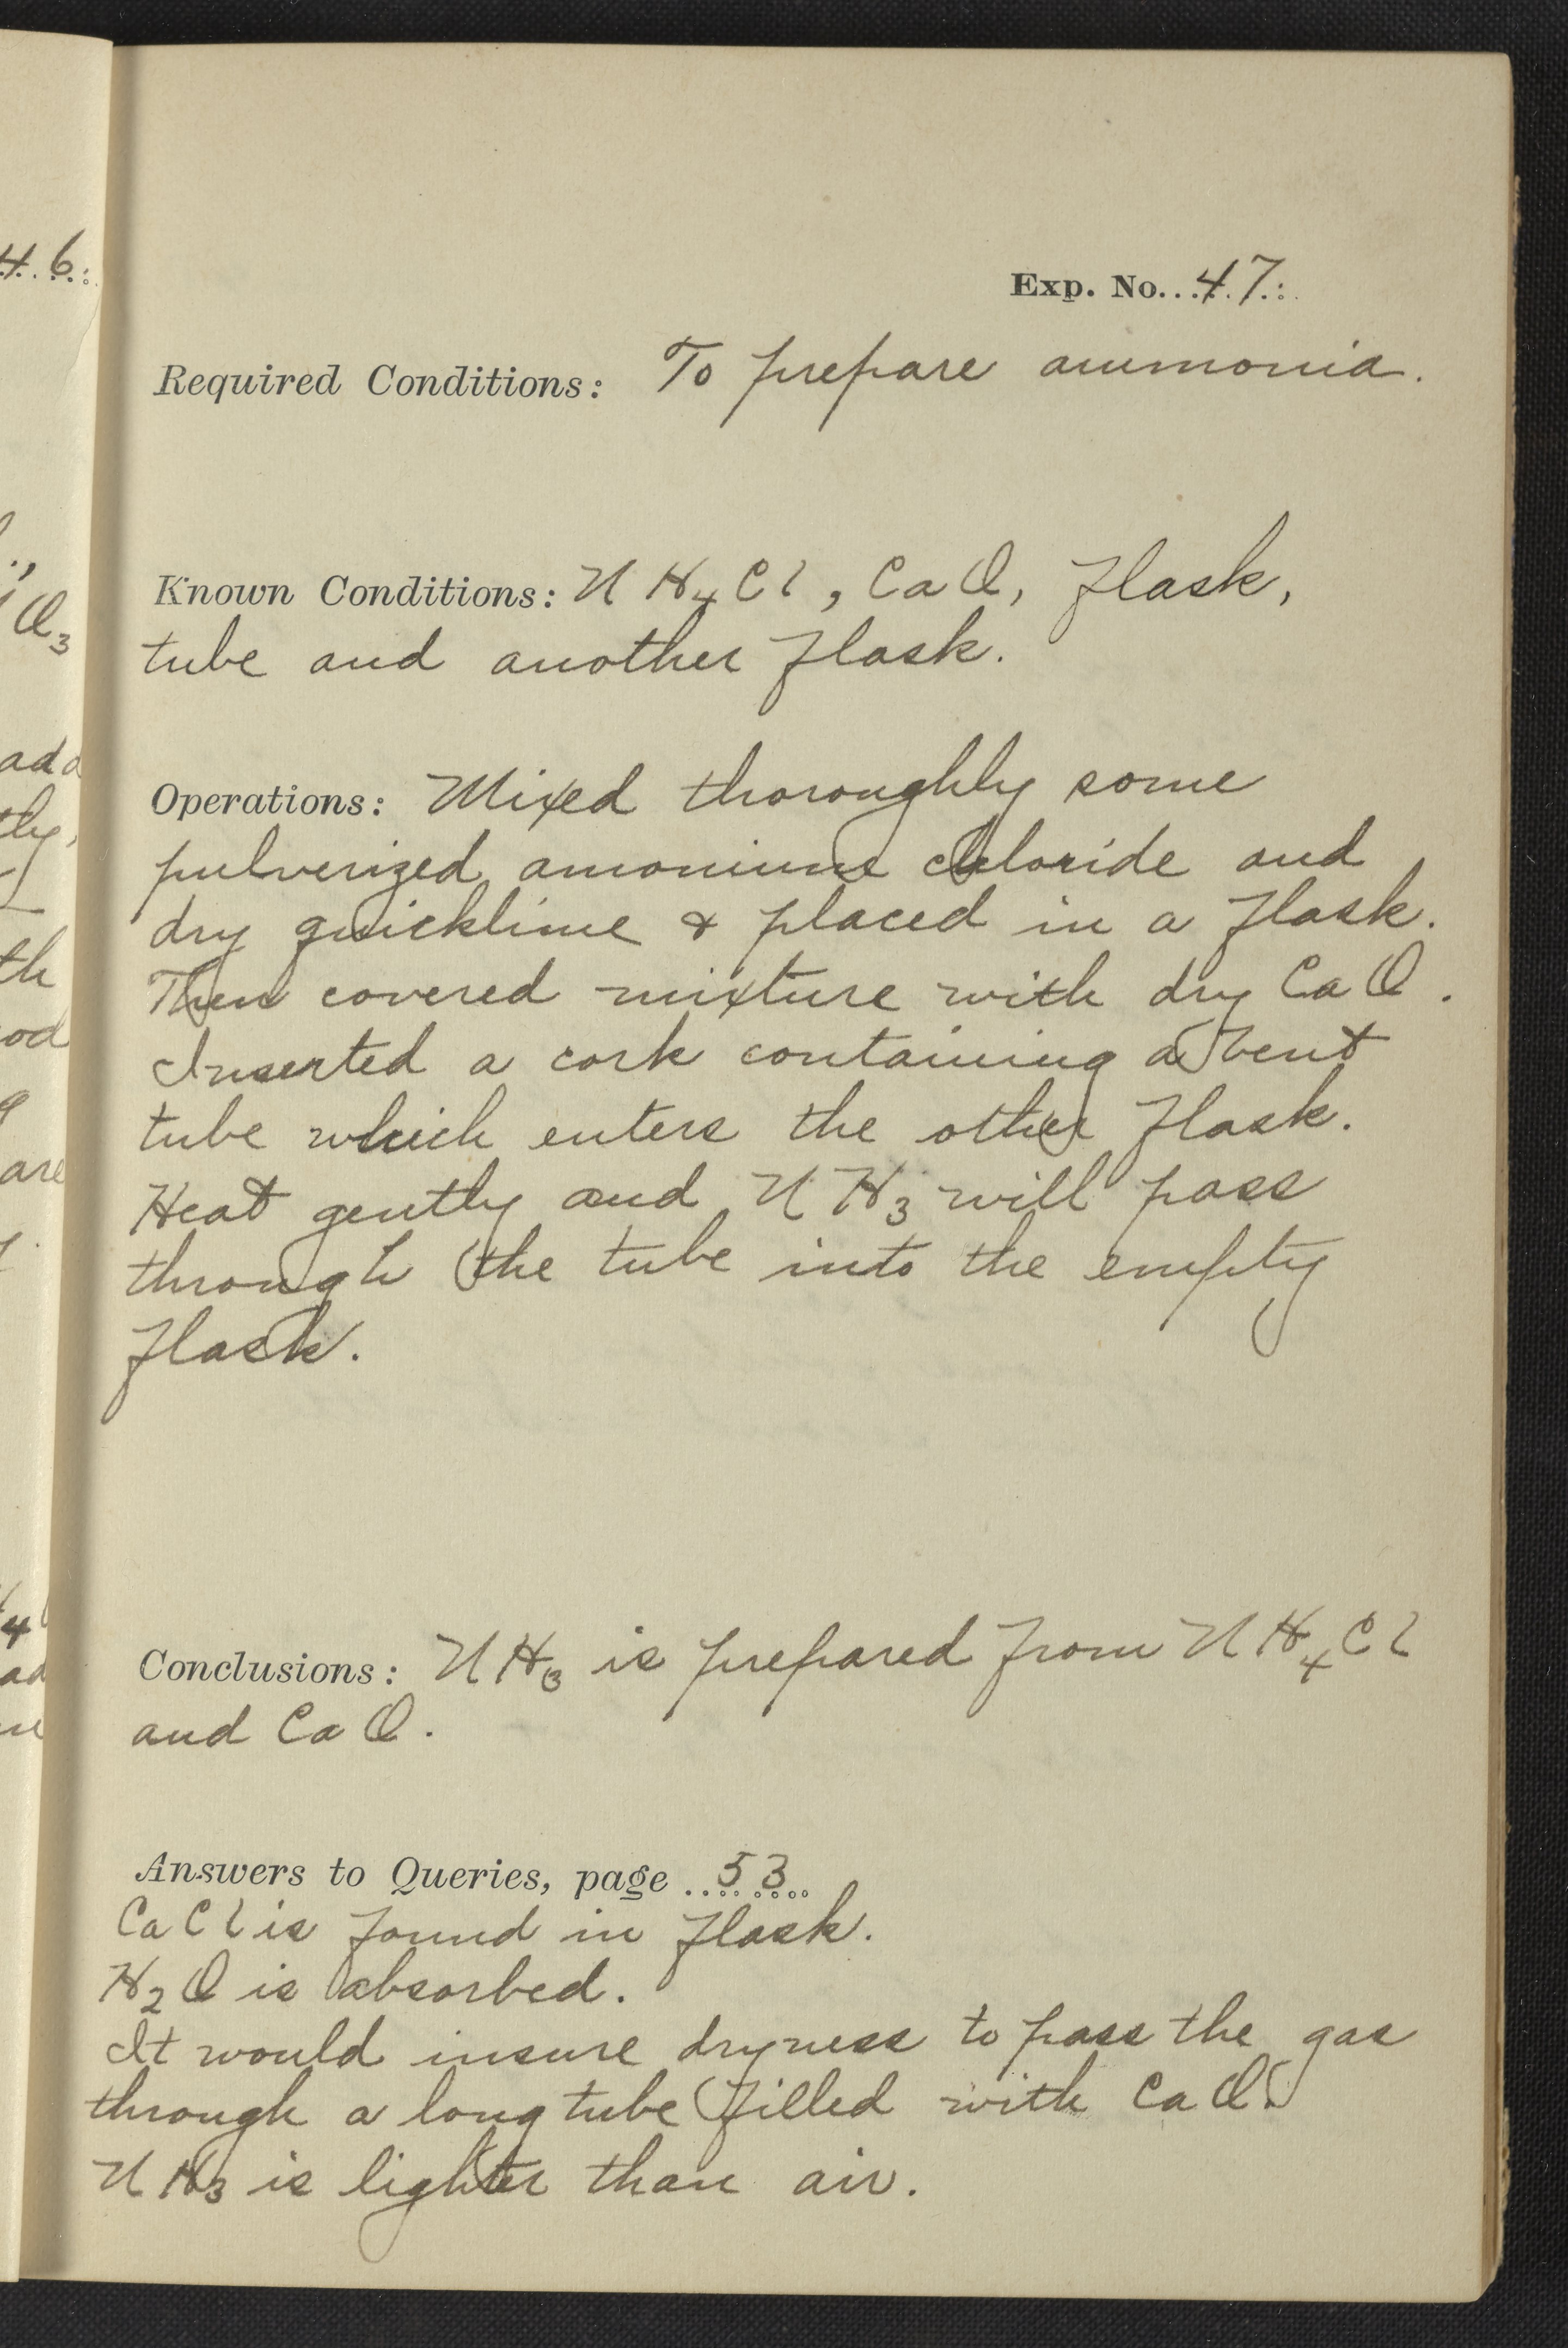 4.6.
O3
add
tly,
th
od
are
4
ad
Exp. No. 47.
Required Conditions: To prepare ammonia.
Known Conditions: NH4Cl, CaO, flask,
tube and another flask.
Operations: Mixed thoroughly some
pulverized amonium chloride and
dry quicklime & placed in a flask.
Then covered mixture with dry CaO.
Inserted a cork containing a bent
tube which enters the other flask.
Heat gently and NH3 will pass
through the tube into the empty
flask.
Conclusions: NH3 is prepared from NH4Cl
and CaO.
Answers to Queries, page 53
CaCl is found in flask.
H2O is absorbed.
It would insure dryness to pass the gas
through a long tube filled with CaO.
NH3 is lighter than air.